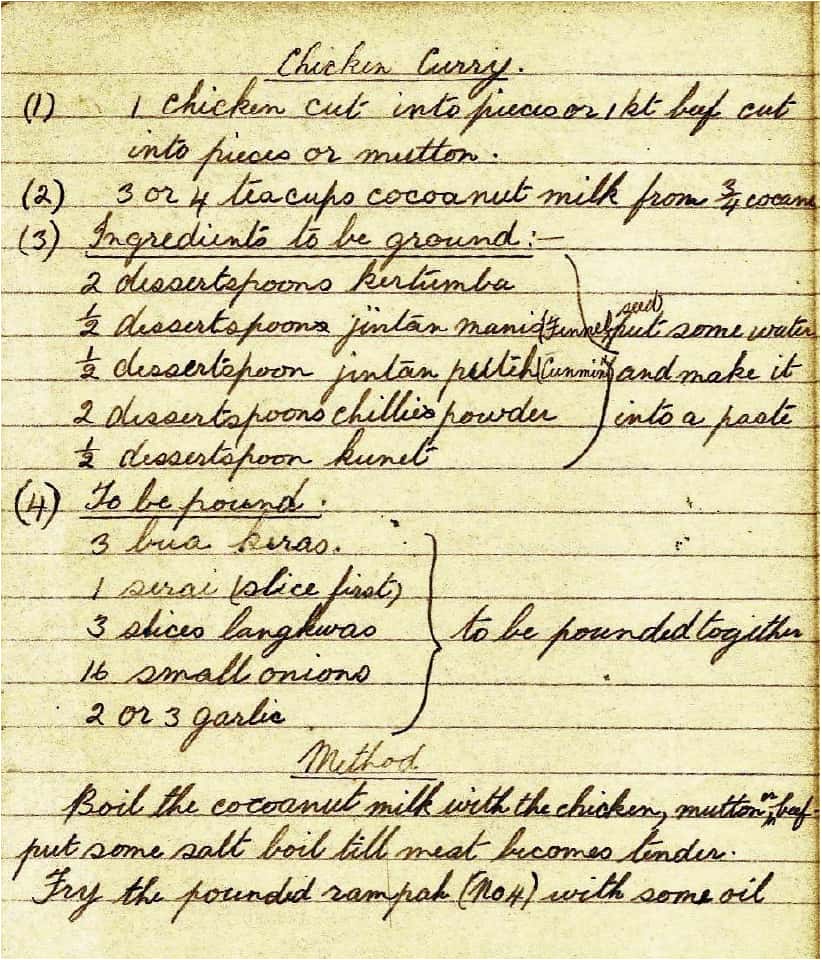 Chicken Curry.
(1) 1 chicken cut into pieces or 1 kt beef cut
into pieces or mutton.
(2) 3 or 4 teacups cocoanut milk from 3/4 cocoan
(3) Ingredients to be ground:-
2 dessertspoons kertumba
1/2 dessertspoons jintan manis (Funnel seed) put some water
1/2 dessertspoon jintan puteh (Cunmin) and make it
2 dessertspoons chillies powder into a paste
1/2 dessertspoon kunet
(4) To be pound.
3 bua keras.
1 serai (slice first)
3 slices langkwas to be pounded together
16 small onions
2 or 3 garlic
Method
Boil the cocoanut milk with the chicken, mutton or beef-
put some salt boil till meat becomes tender.
Fry the pounded rampah (No 4) with some oil